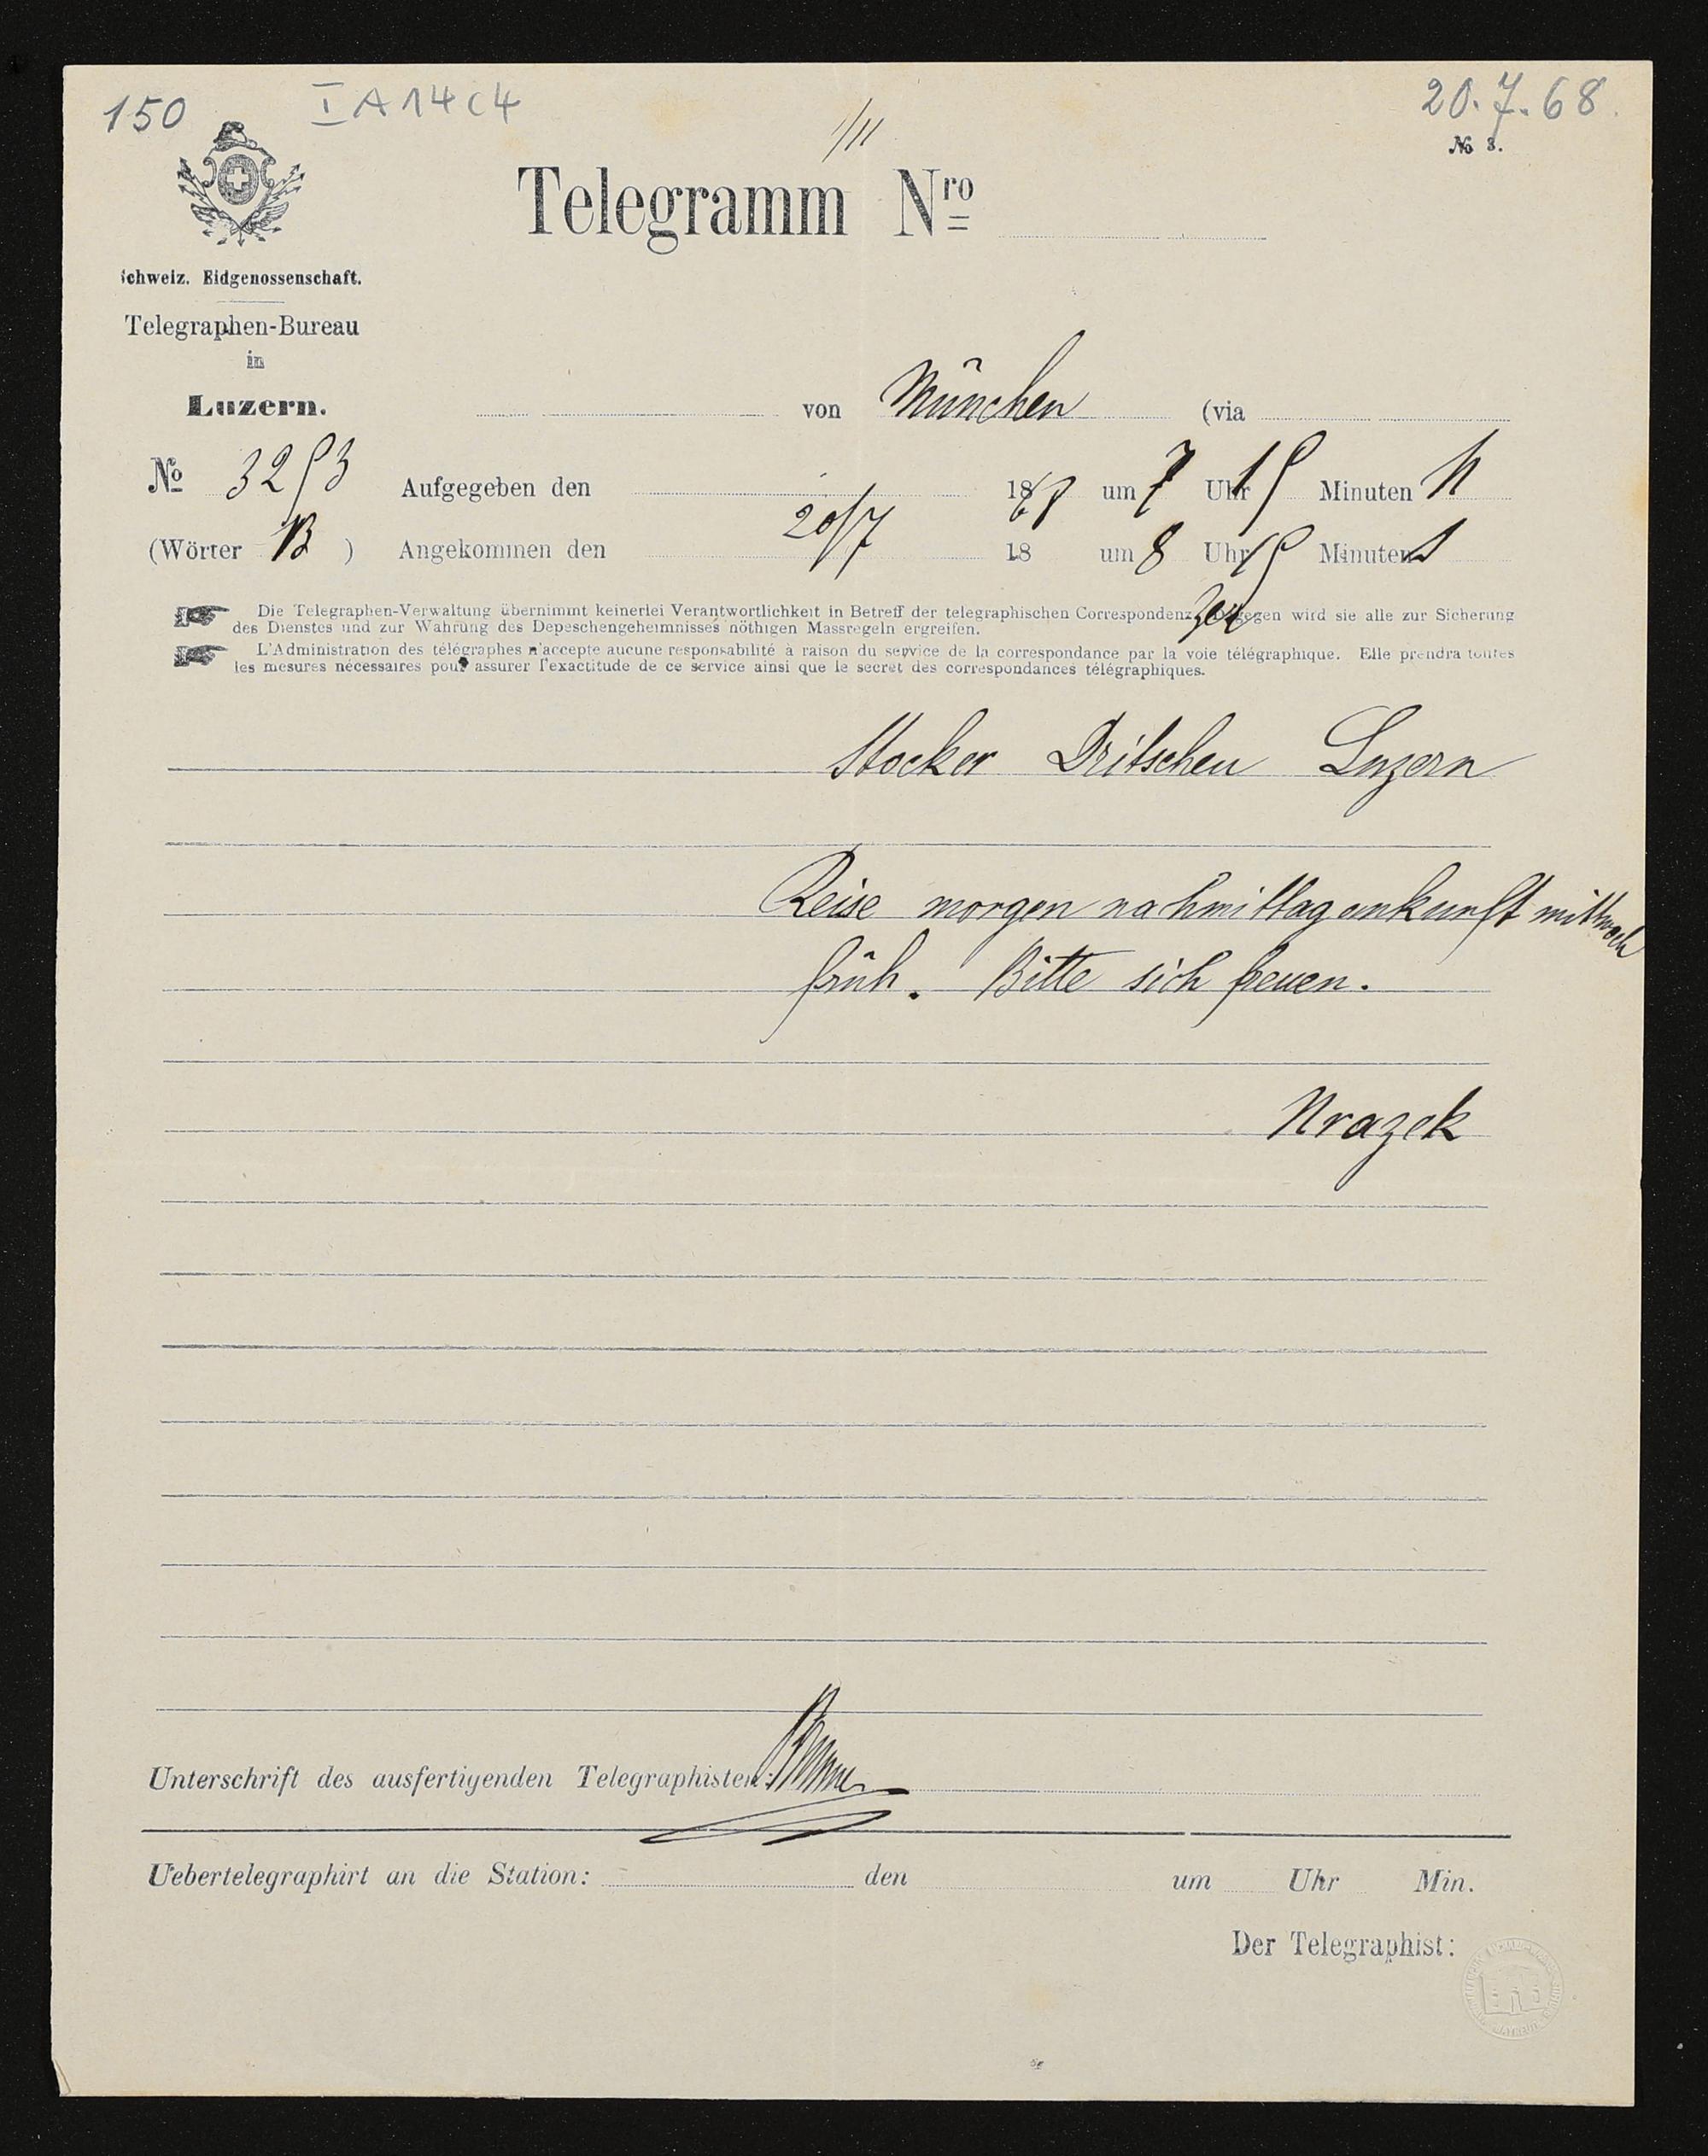 150 I A 14 c 4 20.7.68.
1/11
№ 3.
Telegramm Nro
Schweiz. Eidgenossenschaft.
Telegraphen-Bureau
in
Luzern.
von München (via
№ 3253 Aufgegeben den 1868 um 7 Uhr 15 Minuten N
(Wörter 13 ) Angekommen den 20/7 18 um 8 Uhr 15 Minuten S
Die Telegraphen-Verwaltung übernimmt keinerlei Verantwortlichkeit in Betreff der telegraphischen Correspondenz. Dagegen wird sie alle zur Sicherung
des Dienstes und zur Wahrung des Depeschengeheimnisses nöthigen Massregeln ergreifen.
L'Administration des télégraphes n'accepte aucune responsabilité à raison du service de la correspondance par la voie télégraphique. Elle prendra toutes
les mesures nécessaires pour assurer l'exactitude de ce service ainsi que le secret des correspondances télégraphiques.
Stocker Dritschen Luzern
Reise morgen nachmittag ankunft mittwoch
früh. Bitte sich freuen.
Nrazek
Unterschrift des ausfertigenden Telegraphisten:
Uebertelegraphirt an die Station: den um Uhr Min.
Der Telegraphist: